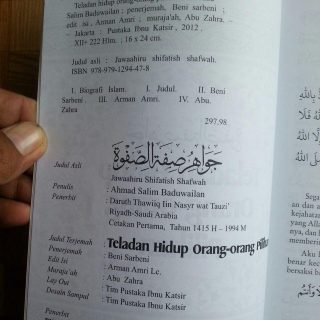 Teladan hidup orang-orang
Salim Baduwailan ; penerjemah, Beni sarbeni ;
edit .isi , Arman Amri ; muraja'ah, Abu Zahra.
– Jakarta : Pustaka Ibnu Katsir, 2012 .
XII+ 222 Hlm. : 16 x 24 cm.
Judul asli : Jawaahiru shifatish shafwah.
ISBN 978-979-1294-47-8
I. Biografi Islam. I. Judul. II. Beni
Sarbeni . III. Arman Amri. IV. Abu.
Zahra
297.98
Judul Asli جواهر صفة الصفوة
Jawaahiru Shifatish Shafwah
Penulis : Ahmad Salim Baduwailan
Penerbit : Daruth Thawiiq lin Nasyr wat Tauzi'
Riyadh-Saudi Arabia
Cetakan Pertama, Tahun 1415 H – 1994 M
Judul Terjemah Teladan Hidup Orang-orang
Penerjemah : Beni Sarbeni
Edit Isi : Arman Amri Lc.
Muraja'ah : Abu Zahra
Lay Out : Tim Pustaka Ibnu Katsir
Desain Sampul : Tim Pustaka Ibnu Katsir
Penerbit